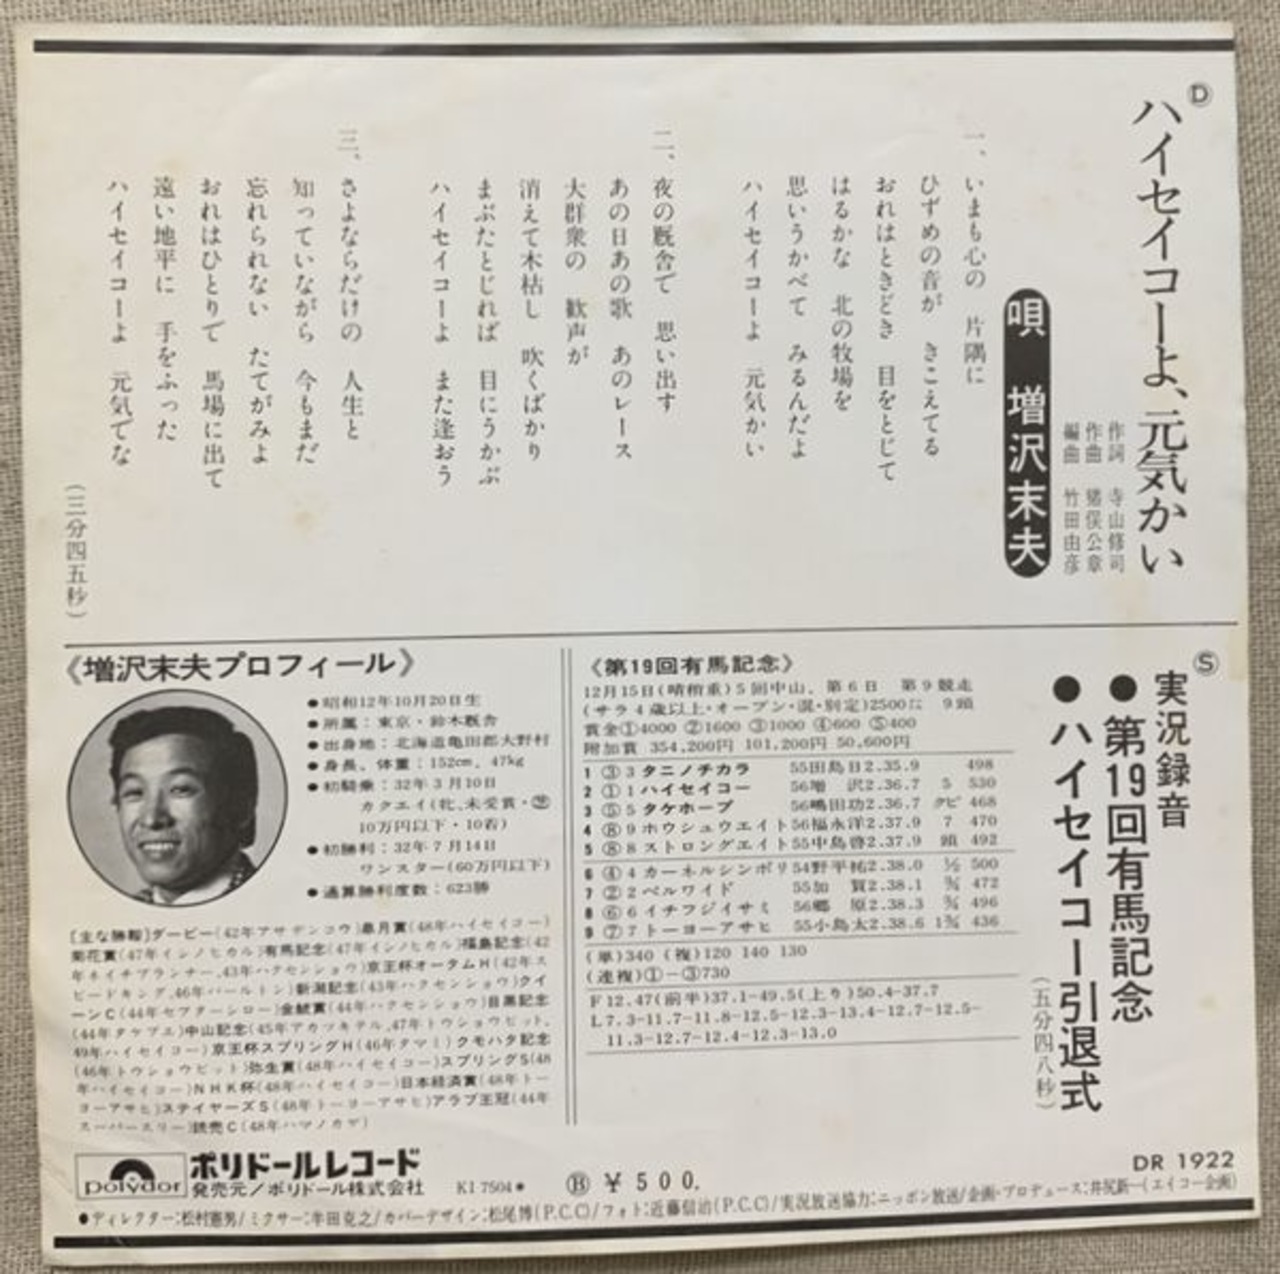 Ⓓ
ハイセイコーよ、元気かい
作詞 寺山修司
作曲 猪俣公章
編曲 竹田由彦
唄 増沢末夫
一、いまも心の 片隅に
ひずめの音が きこえてる
おれはときどき 目をとじて
はるかな 北の牧場を
思いうかべて みるんだよ
ハイセイコーよ 元気かい
二、夜の厩舎で 思い出す
あの日あの歌 あのレース
大群衆の 歓声が
消えて木枯し 吹くばかり
まぶたとじれば 目にうかぶ
ハイセイコーよ また逢おう
三、さよならだけの 人生と
知っていながら 今もまだ
忘れられない たてがみよ
おれはひとりで 馬場に出て
遠い地平に 手をふった
ハイセイコーよ 元気でな
(三分四五秒)
Ⓢ
実況録音
●第19回有馬記念
●ハイセイコー引退式
(五分四八秒)
《第19回有馬記念》
12月15日(晴稍重)5回中山、第6日 第9競走
(サラ4歳以上・オープン・混・別定)2500㍍ 9頭
賞金①4000 ②1600 ③1000 ④600 ⑤400
附加賞 354,200円 101,200円 50,600円
1 ③ 3 タニノチカラ 55田島日2.35.9 498
2 ① 1 ハイセイコー 56増 沢2.36.7 5 530
3 ⑤ 5 タケホープ 56嶋田功2.36.7 クビ 468
4 ⑧ 9 ホウシュウエイト56福永洋2.37.9 7 470
5 ⑧ 8 ストロングエイト55中島啓2.37.9 頭 492
6 ④ 4 カーネルシンボリ54野平祐2.38.0 ½ 500
7 ② 2 ベルワイド 55加 賀2.38.1 ¾ 472
8 ⑥ 6 イチフジイサミ 56郷 原2.38.3 ¾ 496
9 ⑦ 7 トーヨーアサヒ 55小島太2.38.6 1¾ 436
(単)340 (複)120 140 130
(連複)①-③730
F12.47(前半)37.1-49.5(上り)50.4-37.7
L7.3-11.7-11.8-12.5-12.3-13.4-12.7-12.5-
11.3-12.7-12.4-12.3-13.0
《増沢末夫プロフィール》
●昭和12年10月20日生
●所属:東京・鈴木厩舎
●出身地:北海道亀田郡大野村
●身長、体重:152cm、47kg
●初騎乗:32年3月10日
カクエイ(牝、未受賞・
10万円以下・10着)
●初勝利:32年7月14日
ワンスター(60万円以下)
●通算勝利度数:623勝
[主な勝鞍]ダービー(42年アサデンコウ)皐月賞(48年ハイセイコー)
菊花賞(47年イシノヒカル)有馬記念(47年イシノヒカル)福島記念(42
年ネイチブランナー、43年ハクセンショウ)京王杯オータムH(42年ス
ピードキング、46年ハールトン)新潟記念(43年ハクセンショウ)クイ
ーンC(44年セプターシロー)金鯱賞(44年ハクセンショウ)目黒記念
(44年タケブエ)中山記念(45年アカツキテル、47年トウショウピット、
49年ハイセイコー)京王杯スプリングH(46年タマミ)クモハタ記念
(46年トウショウピット)弥生賞(48年ハイセイコー)スプリングS(48
年ハイセイコー)NHK杯(48年ハイセイコー)日本経済賞(48年トー
ヨーアサヒ)ステイヤーズS(48年トーヨーアサヒ)アラブ王冠(44年
スーパースリー)読売C(48年ハマノカゼ)
polydor
ポリドールレコード
発売元/ポリドール株式会社
KI 7504★
Ⓑ ¥500.
DR 1922
●ディレクター:松村憲男/ミクサー:半田克之/カバーデザイン:松尾博(P.C.C)/フォト:近藤信治(P.C.C)/実況放送協力:ニッポン放送/企画・プロデュース:井尻新一(エイコー企画)